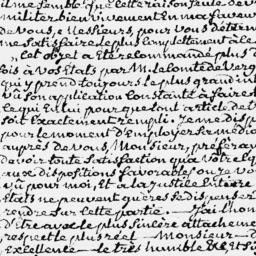 il me semble que cette raison seule de v
militer bien vivement en ma faveur
de vous, Messieurs, pour vous déterm
me satisfaire le plus complettement à ce
Cet objet a été recommandé plus d
ois à vos Etats par M. le Comte de Verg
qui prend toujours le plus grand int
vû son application constante à faire
ce qui est lui pour que son t article de t
soit exactement rempli. Je me disp
pour le moment d'Employer sa médio
auprès de vous, Monsieur, préferant
devoir toute satisfaction qua votre Eq
aux dispositions favorables où je vo
vû pour moi, Et à la justice Entière
Etats ne peuvent guères se dispenser
rendre sur cette partie. J'ai l'hon
d'être avec le plus sincère attacheme
respect le plus réel Monsieur de
Excellence le très humble Et